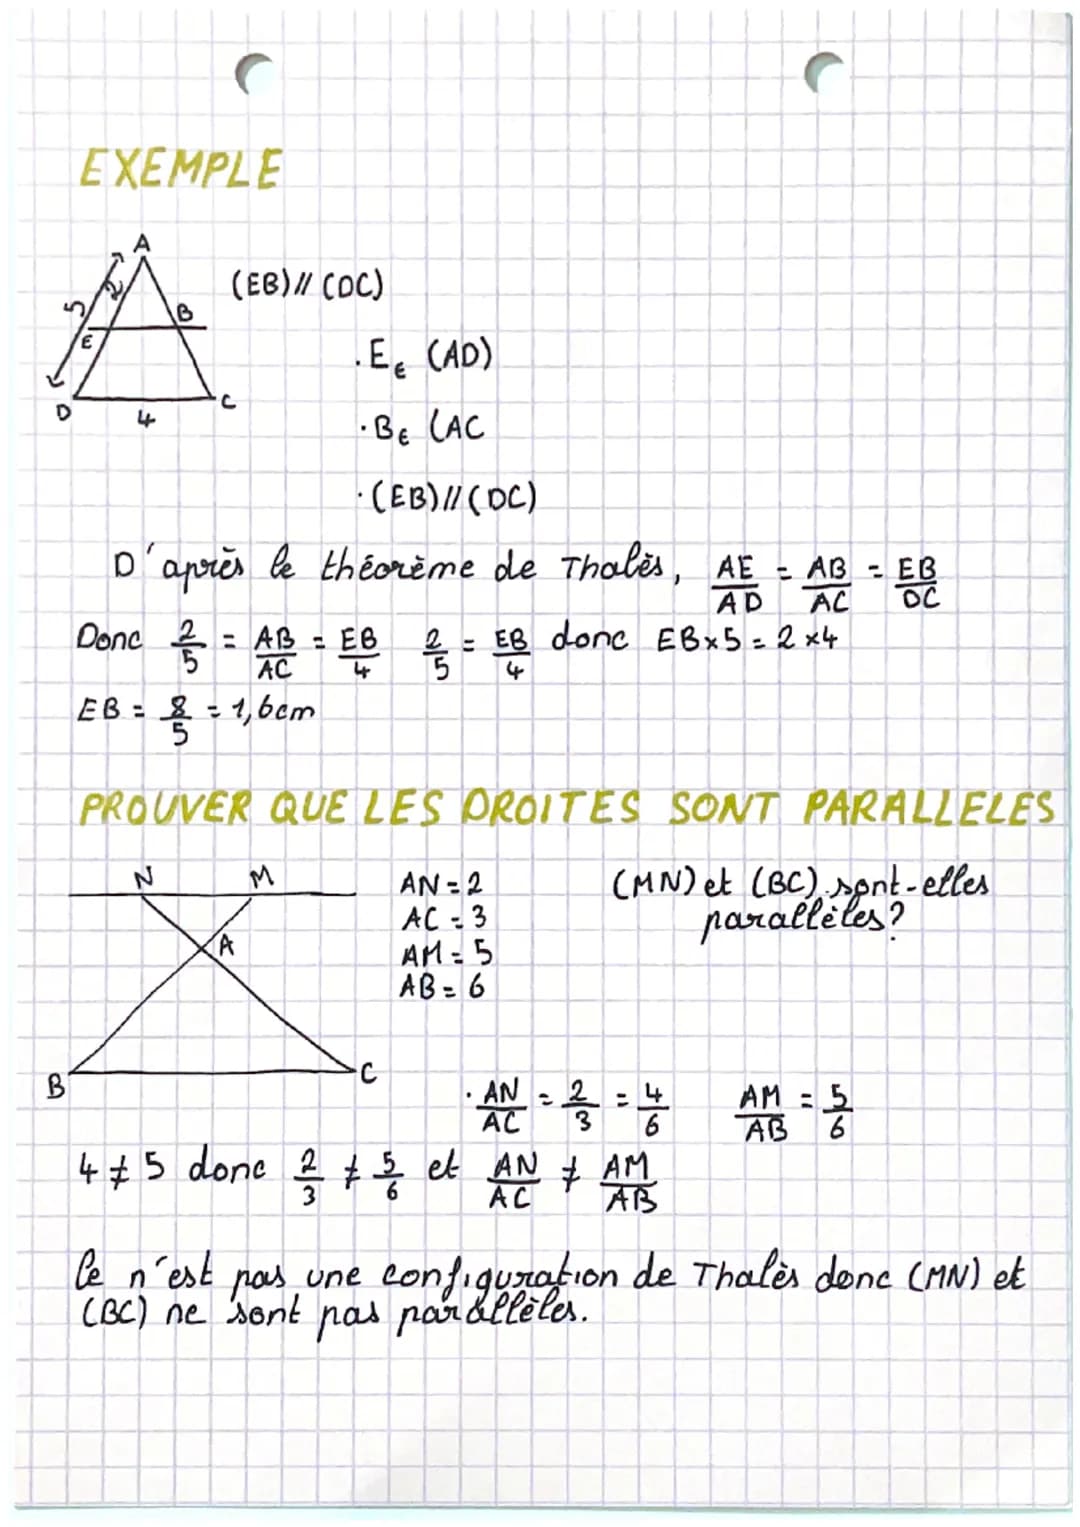 EXEMPLE
A
5
2
B
E
D
4
C
(EB)//(DC)
.E∈ (AD)
.B∈ (AC
.(EB)//(DC)
D'après le théorème de Thalès, AE/AD = AB/AC = EB/DC
Donc 2/5 = AB/AC = EB/4 2/5 = EB/4 donc EB×5=2×4
EB = 8/5 = 1,6cm
PROUVER QUE LES DROITES SONT PARALLELES
N M
A
B
C
AN=2
AC=3
AM=5
AB=6
(MN) et (BC) sont-elles
parallèles?
. AN/AC = 2/3 = 4/6 AM/AB = 5/6
4≠5 donc 2/3 ≠ 5/6 et AN/AC ≠ AM/AB
Ce n'est pas une configuration de Thalès donc (MN) et
(BC) ne sont pas parallèles.